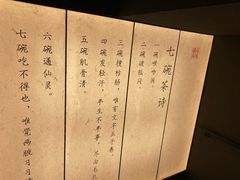 七碗茶诗
一碗喉吻润，
二碗破孤闷，
三碗搜枯肠，唯有文字五千卷，
四碗发轻汗，平生不平事，尽向毛孔
五碗肌骨清，
六碗通仙灵。
七碗吃不得也，唯觉两腋习习